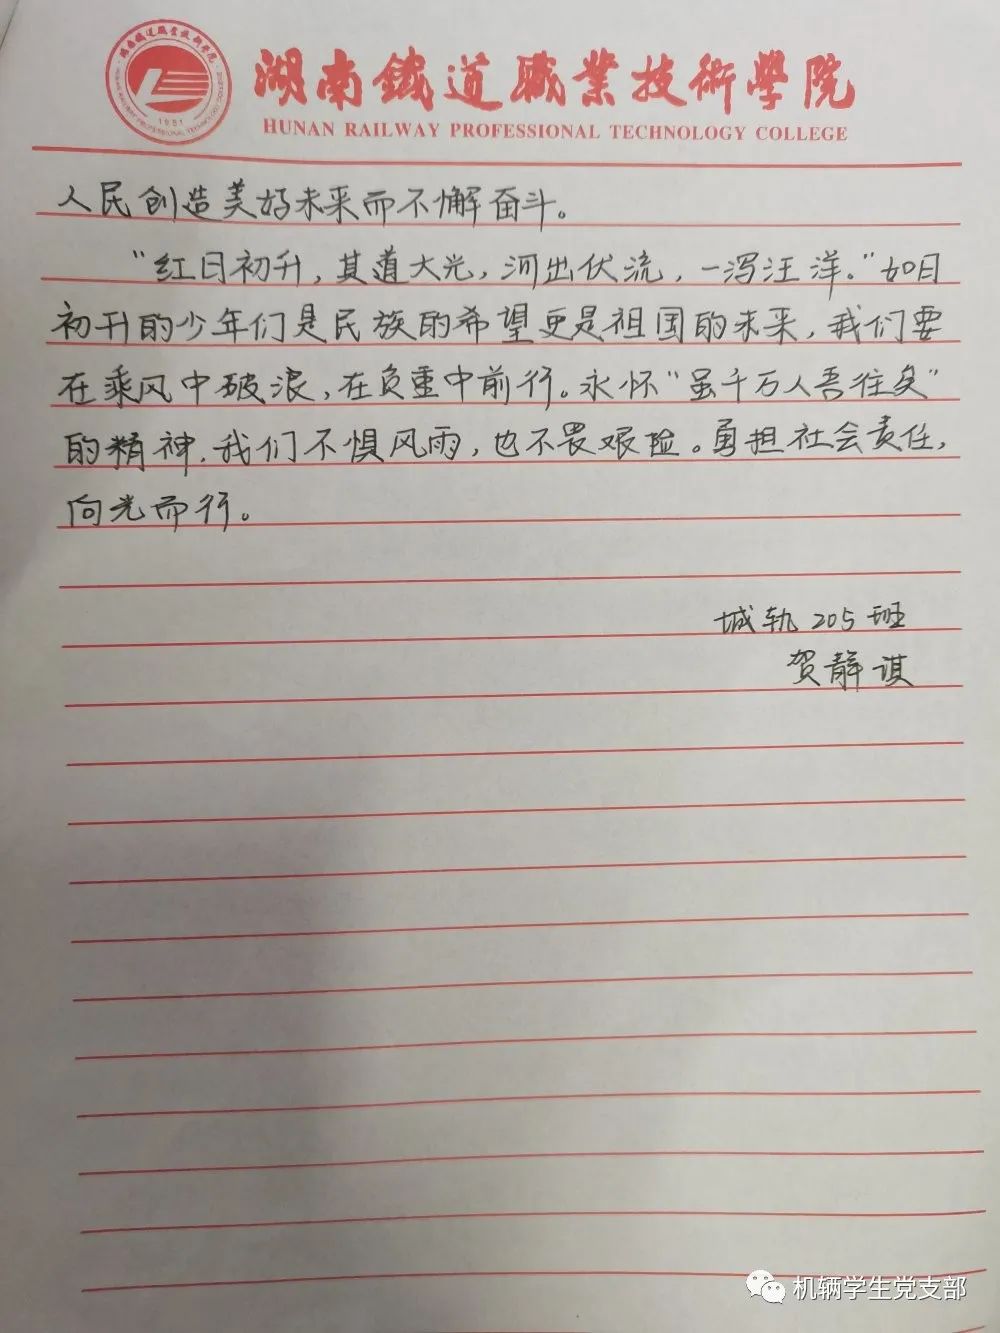 湖南鐵道職業技術學院
HUNAN RAILWAY PROFESSIONAL TECHNOLOGY COLLEGE
1951
人民创造美好未来而不懈奋斗。
“红日初升，其道大光，河出伏流，一泻汪洋。”如日
初升的少年们是民族的希望更是祖国的未来，我们要
在乘风中破浪，在负重中前行。永怀“虽千万人吾往矣”
的精神，我们不惧风雨，也不畏艰险。勇担社会责任，
向光而行。
城轨205班
贺静淇
机辆学生党支部